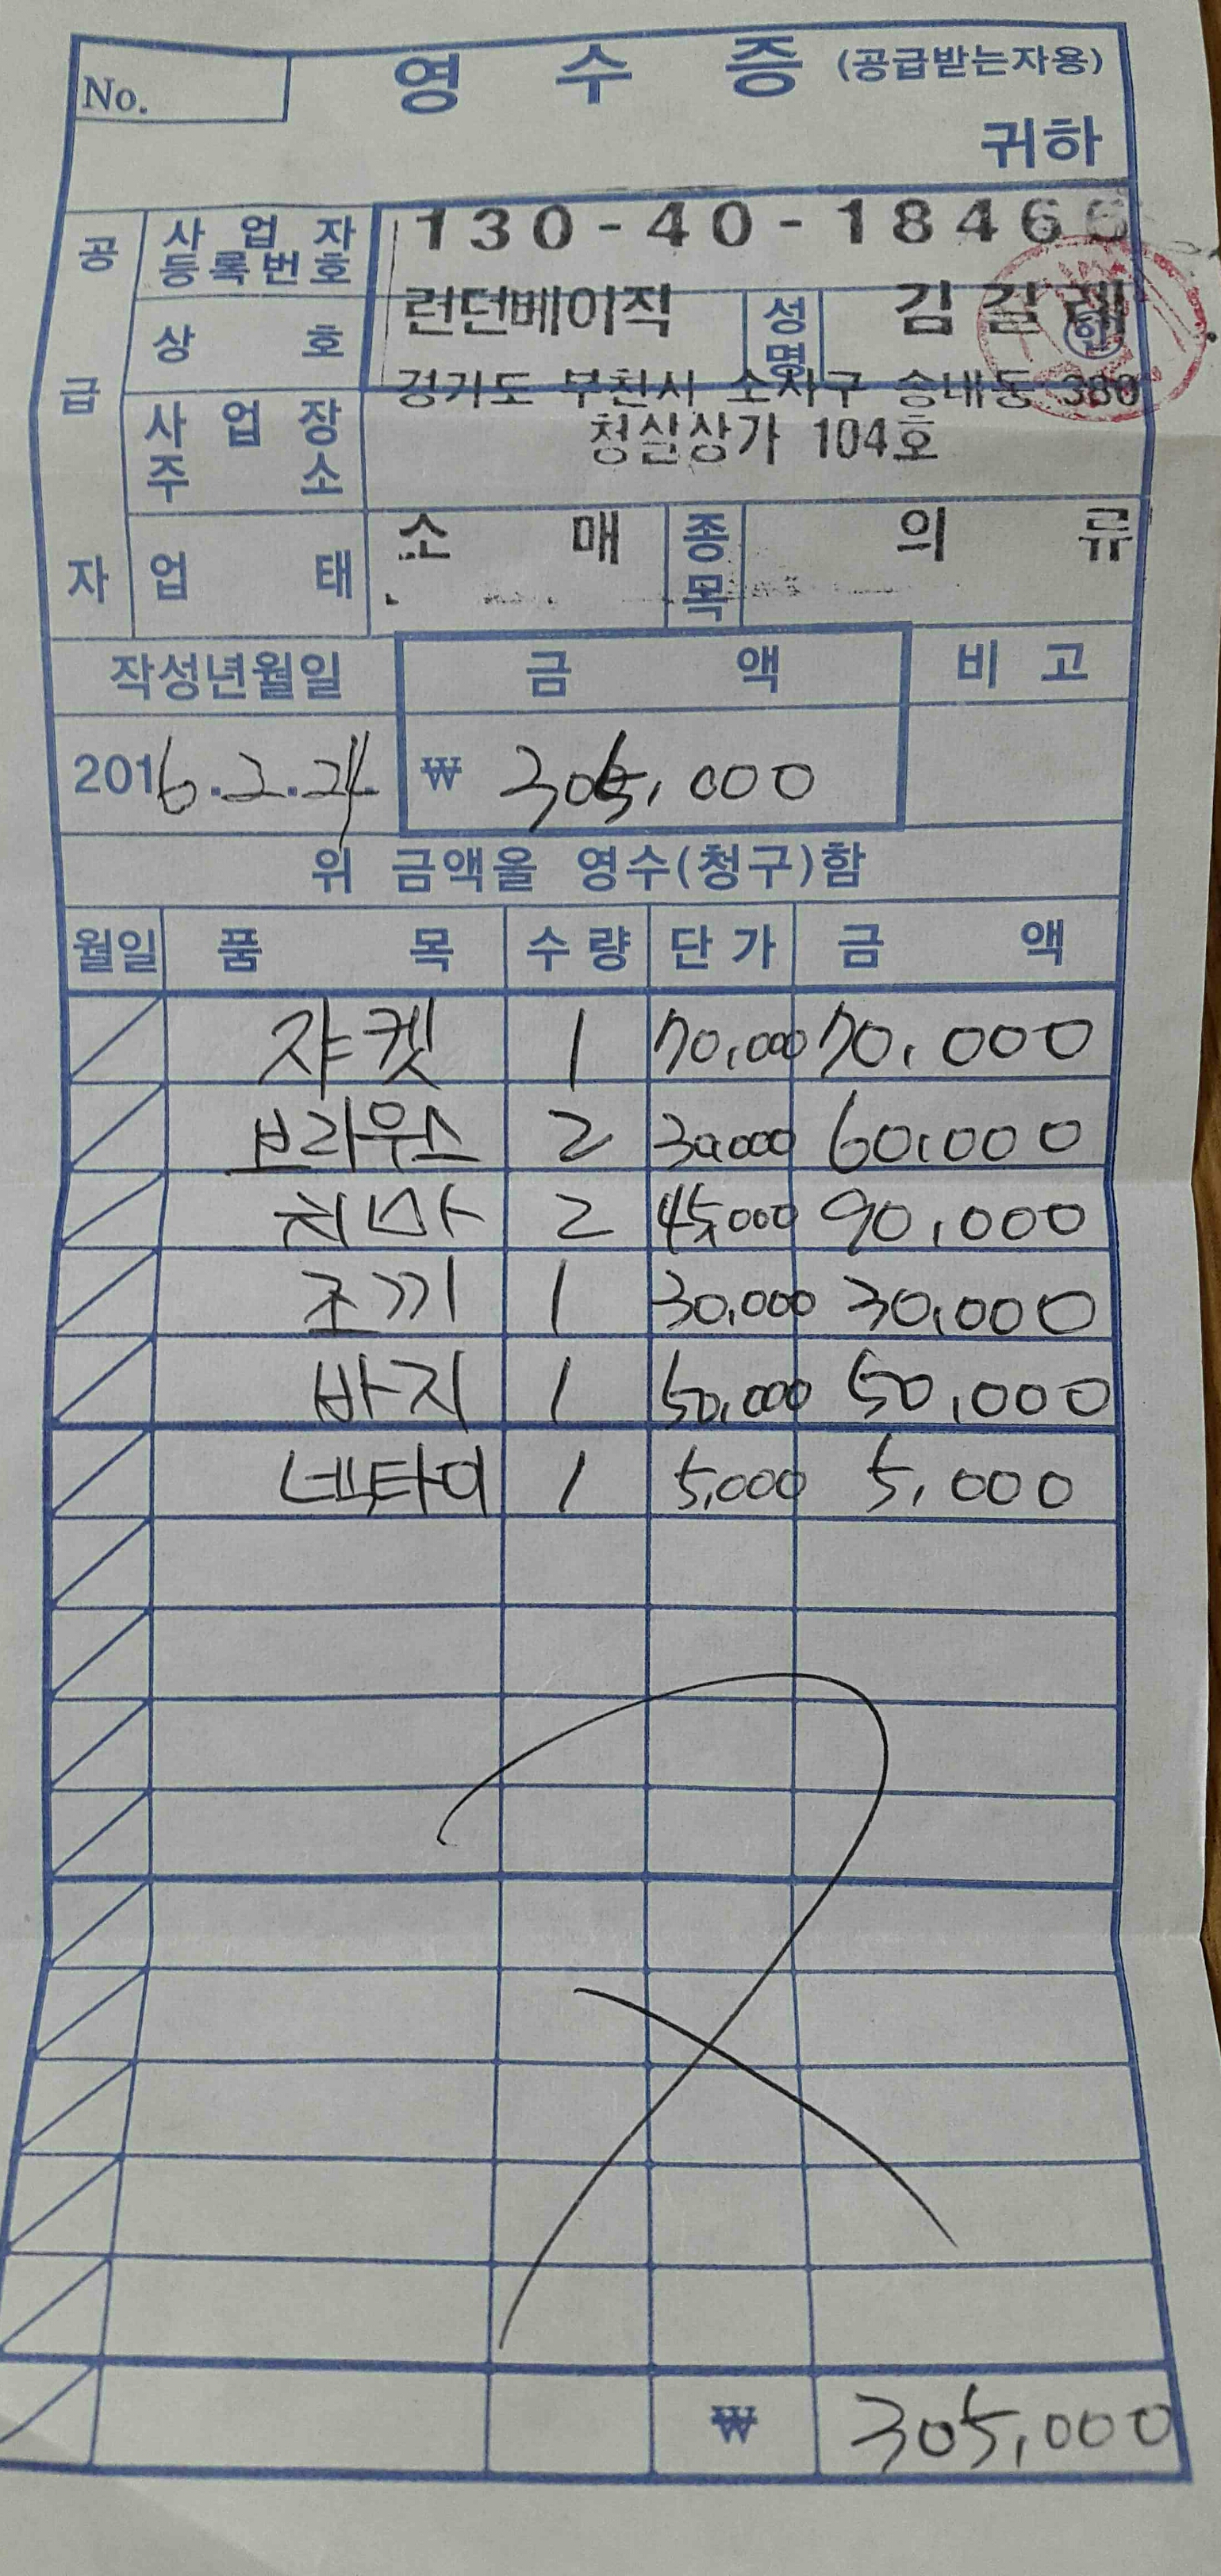 No.
영 수 증 (공급받는자용)
귀하
공급자
사업자등록번호 130-40-18466
상호 런던베이직 성명 김길례 ㊞
사업장주소 경기도 부천시 소사구 송내동 380
청실상가 104호
업태 소매 종목 의류
작성년월일 금액 비고
2016.2.24 ₩ 305,000
위 금액을 영수(청구)함
월일 품목 수량 단가 금액
쟈켓 1 70,000 70,000
브라우스 2 30,000 60,000
치마 2 45,000 90,000
조끼 1 30,000 30,000
바지 1 50,000 50,000
넥타이 1 5,000 5,000
₩ 305,000